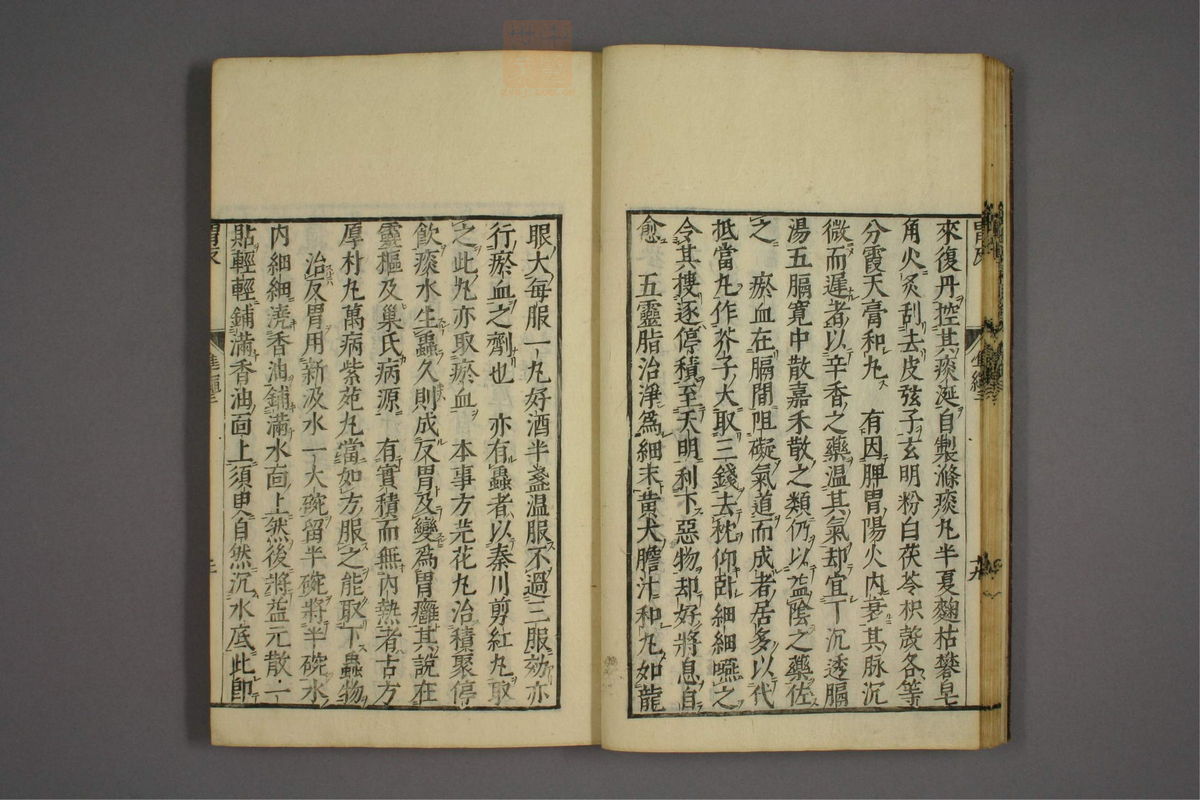 來復丹控其痰涎自製滌痰丸半夏麴枯礬皂
角火炙刮去皮弦子玄明粉白茯苓枳殼各等
分霞天膏和丸 有因脾胃陽火內衰其脉沉
微而遲者以辛香之藥溫其氣却宜丁沉透膈
湯五膈寬中散嘉禾散之類仍以益陰之藥佐
之 瘀血在膈間阻礙氣道而成者居多以代
抵當丸作芥子大取三錢去枕仰臥細細嚥之
令其搜逐停積至天明利下惡物却好將息自
愈 五靈脂治淨為細末黃犬膽汁和丸如龍
眼大每服一丸好酒半盞溫服不過三服効亦
行瘀血之劑也 亦有蟲者以秦川剪紅丸取
之此丸亦取瘀血 本事方芫花丸治積聚停
飲痰水生蟲久則成反胃及變為胃癰其說在
靈樞及巢氏病源 有實積而無內熱者古方
厚朴丸萬病紫菀丸當如方服之能取下蟲物
治反胃用新汲水一大碗留半碗將半碗水
內細細澆香油鋪滿水面上然後將益元散一
貼輕輕鋪滿香油面上須臾自然沉水底此即
胃反